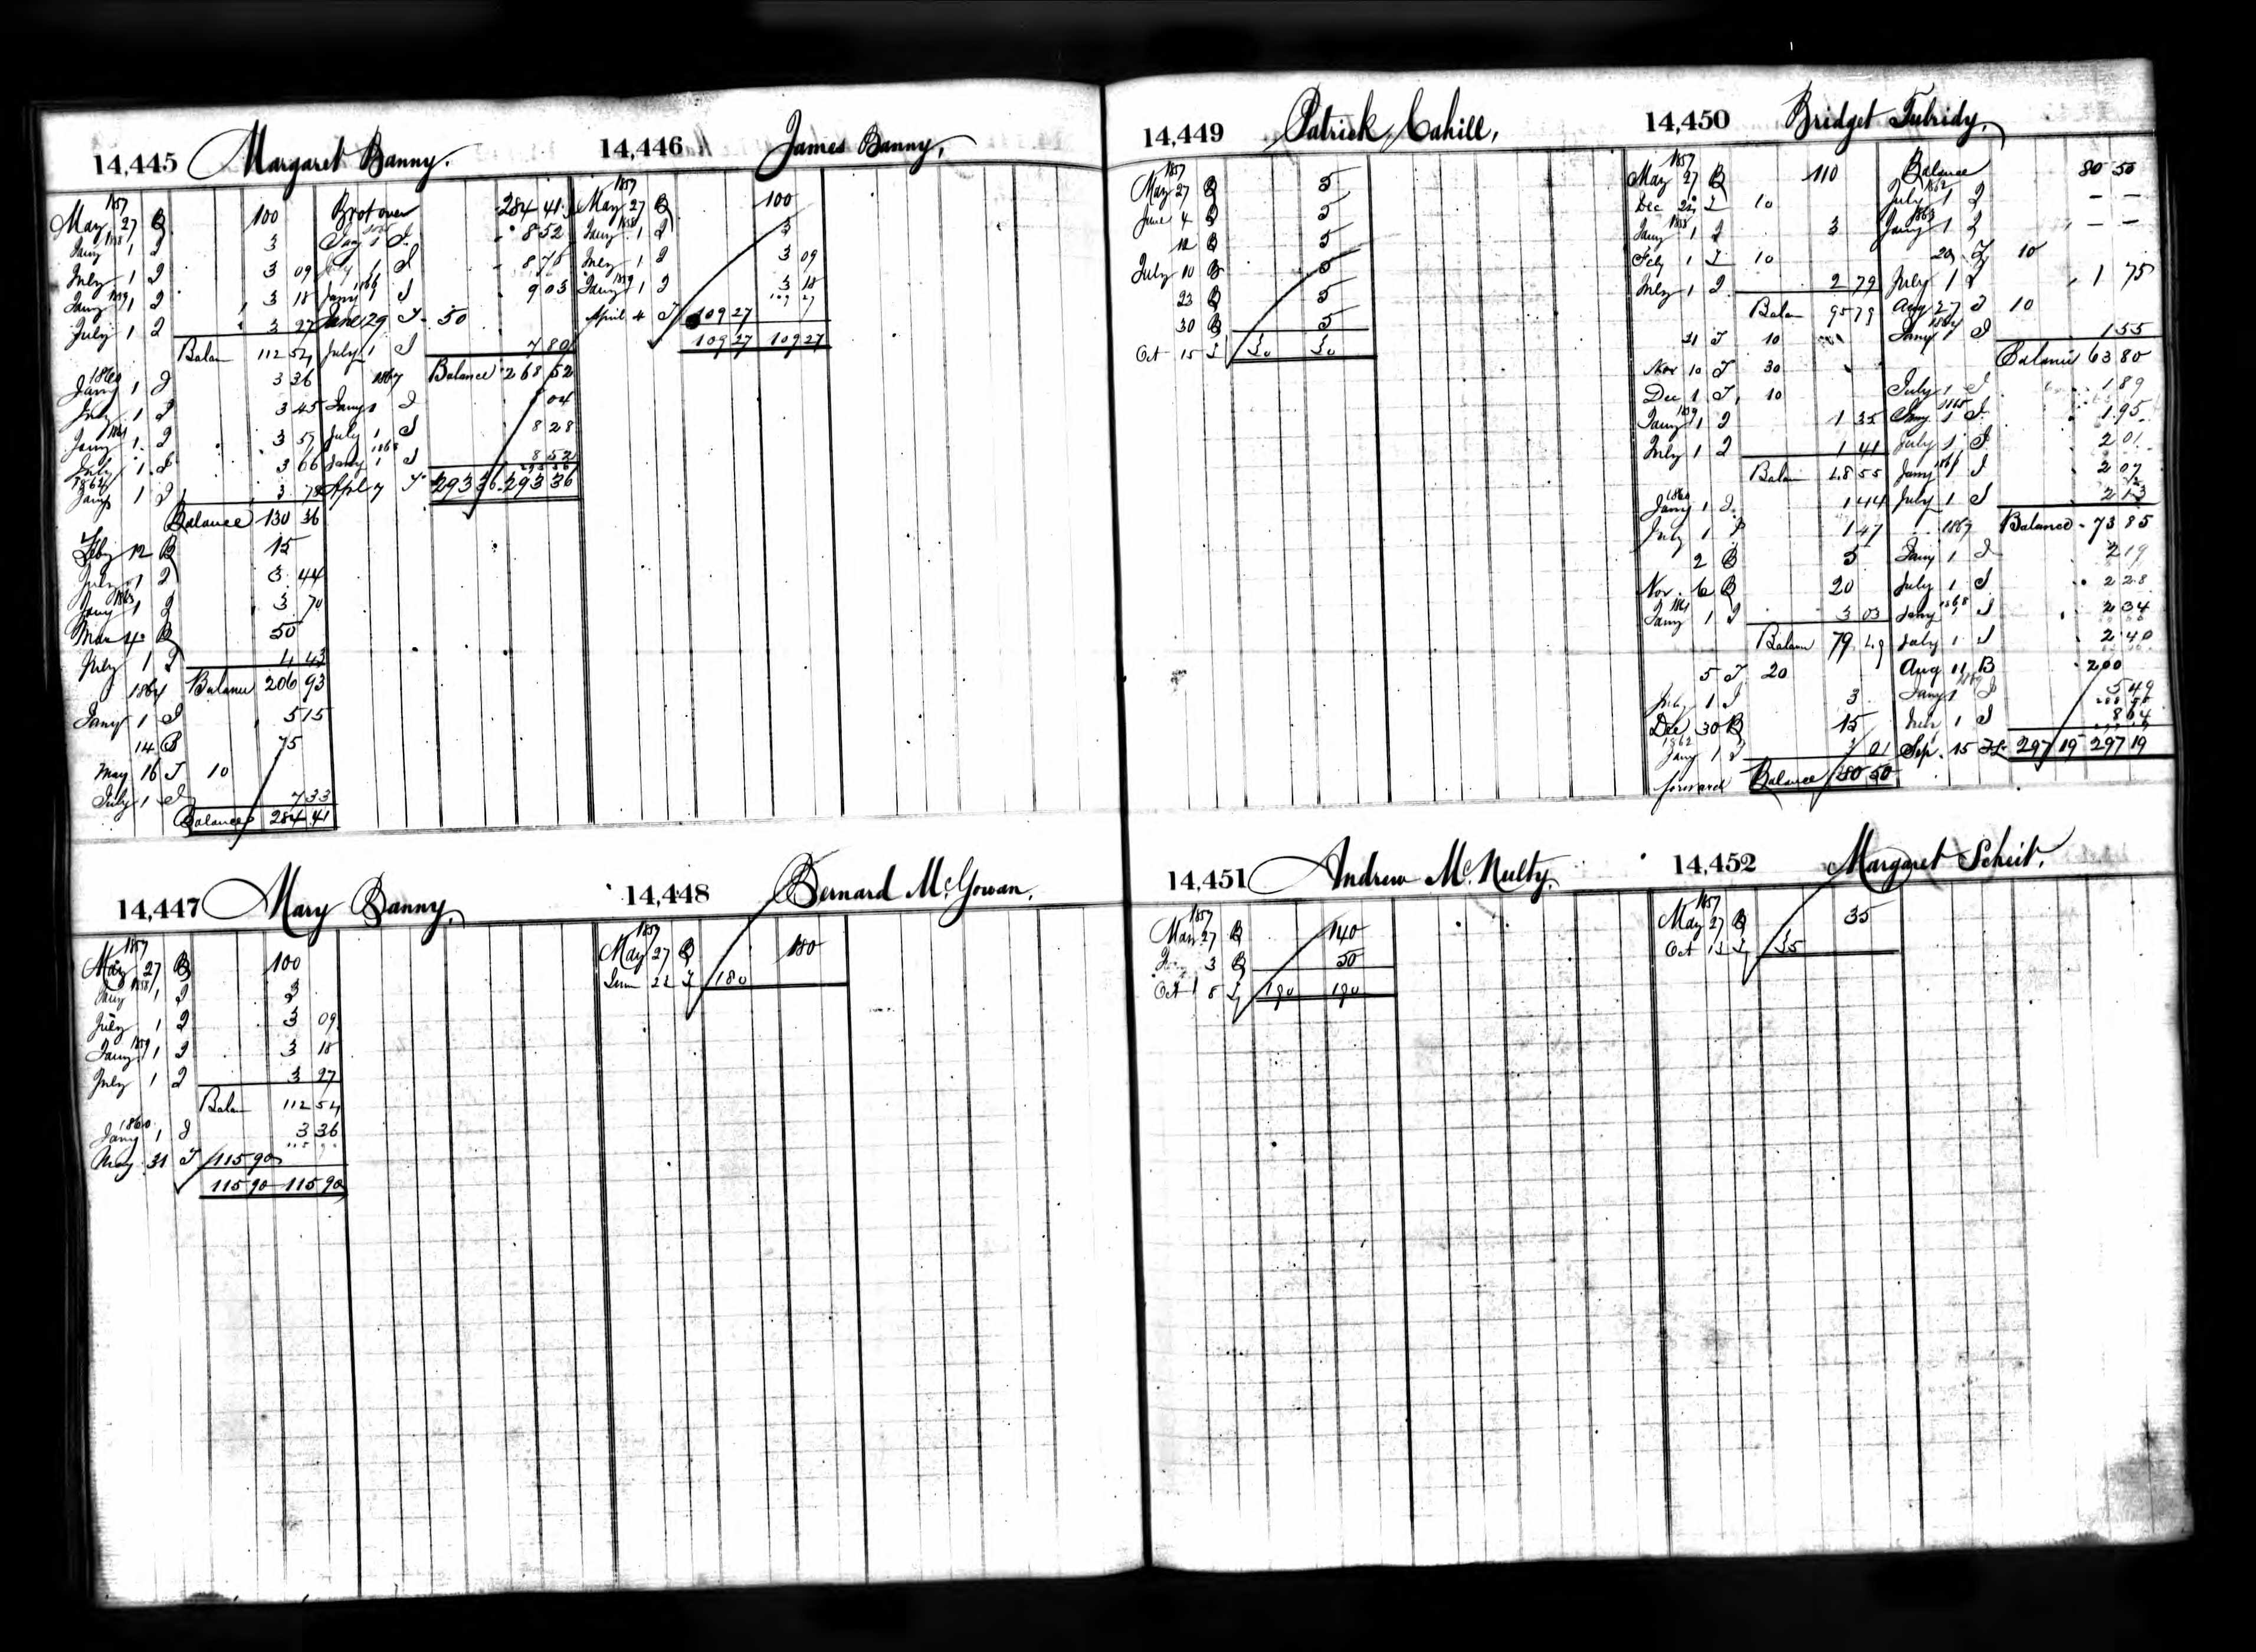 14,445 Margaret Banny.
1857
May 27 B 100
1858
Jany 1 I 3
July 1 I 3 09
Jany 1859 1 I 3 18
July 1 I 3 27
Balan 112 54
1860
Jany 1 I 3 36
July 1 I 3 45
Jany 1861 1 I 3 57
July 1 I 3 66
1862
Jany 1 I 3 78
Balance 130 36
Feby 12 B 15
July 1 I 3 44
Jany 1863 1 I 3 70
Mar 4 B 50
July 1 I 4 43
1864 Balance 206 93
Jany 1 I 5 15
14 B 75
May 16 T 10
July 1 I 7 33
Balance 284 41
Brot over 284 41
Jany 1 I 8 52
July 1 I 8 76
Jany 1866 1 I 9 03
June 29 T 50
July 1 I 7 80
1867 Balance 268 52
Jany 1 I 8 04
July 1 I 8 28
1868
Jany 1 I 8 52
293 36
Apl 7 T 293 36 293 36
14,446 James Banny,
1857
May 27 B 100
Jany 1858 1 I 3
July 1 I 3 09
Jany 1859 1 I 3 18
109 27
April 4 T 109 27
109 27 109 27
14,447 Mary Banny,
1857
May 27 B 100
1858
Jany 1 I 3
July 1 I 3 09
Jany 1859 1 I 3 18
July 1 I 3 27
Balan 112 54
1860
Jany 1 I 3 36
May 31 T 115 90
115 90 115 90
14,448 Bernard McGowan.
1857
May 27 B 180
June 22 T 180
14,449 Patrick Cahill,
1857
May 27 B 5
June 4 B 5
12 B 5
July 10 B 5
23 B 5
30 B 5
Oct 15 T 30 30
14,450 Bridget Tubridy,
1857
May 27 B 110
Dec 22 T 10
1858
Jany 1 I 3
Feby 1 T 10
July 1 I 2 79
Balan 95 79
21 T 10
Nov 10 T 30
Dec 1 T 10
Jany 1859 1 I 1 35
July 1 I 1 41
Balan 48 55
1860
Jany 1 I 1 44
July 1 I 1 47
2 B 5
Nov 6 B 20
1861
Jany 1 I 3 03
Balan 79 49
5 T 20
July 1 I 3
Dec 30 B 15
1862
Jany 1 I 3 01
forward Balance 80 50
Balance 80 50
1862
July 1 I — —
1863
Jany 1 I — —
29 T 10
July 1 I 1 75
Aug 27 T 10
1864
Jany 1 I 1 55
Balance 63 80
July 1 I 1 89
Jany 1865 1 I 1 95
July 1 I 2 01
Jany 1866 1 I 2 07
July 1 I 2 13
1867 Balance 73 85
Jany 1 I 2 19
July 1 I 2 28
Jany 1868 1 I 2 34
July 1 I 2 40
Aug 11 B 200
Jany 1869 1 I 5 49
July 1 I 8 64
Sep. 15 T 297 19 297 19
14,451 Andrew McNulty,
1857
May 27 B 140
3 B 50
Oct 8 T 190 190
14,452 Margaret Scheit.
1857
May 27 B 35
Oct 13 T 35